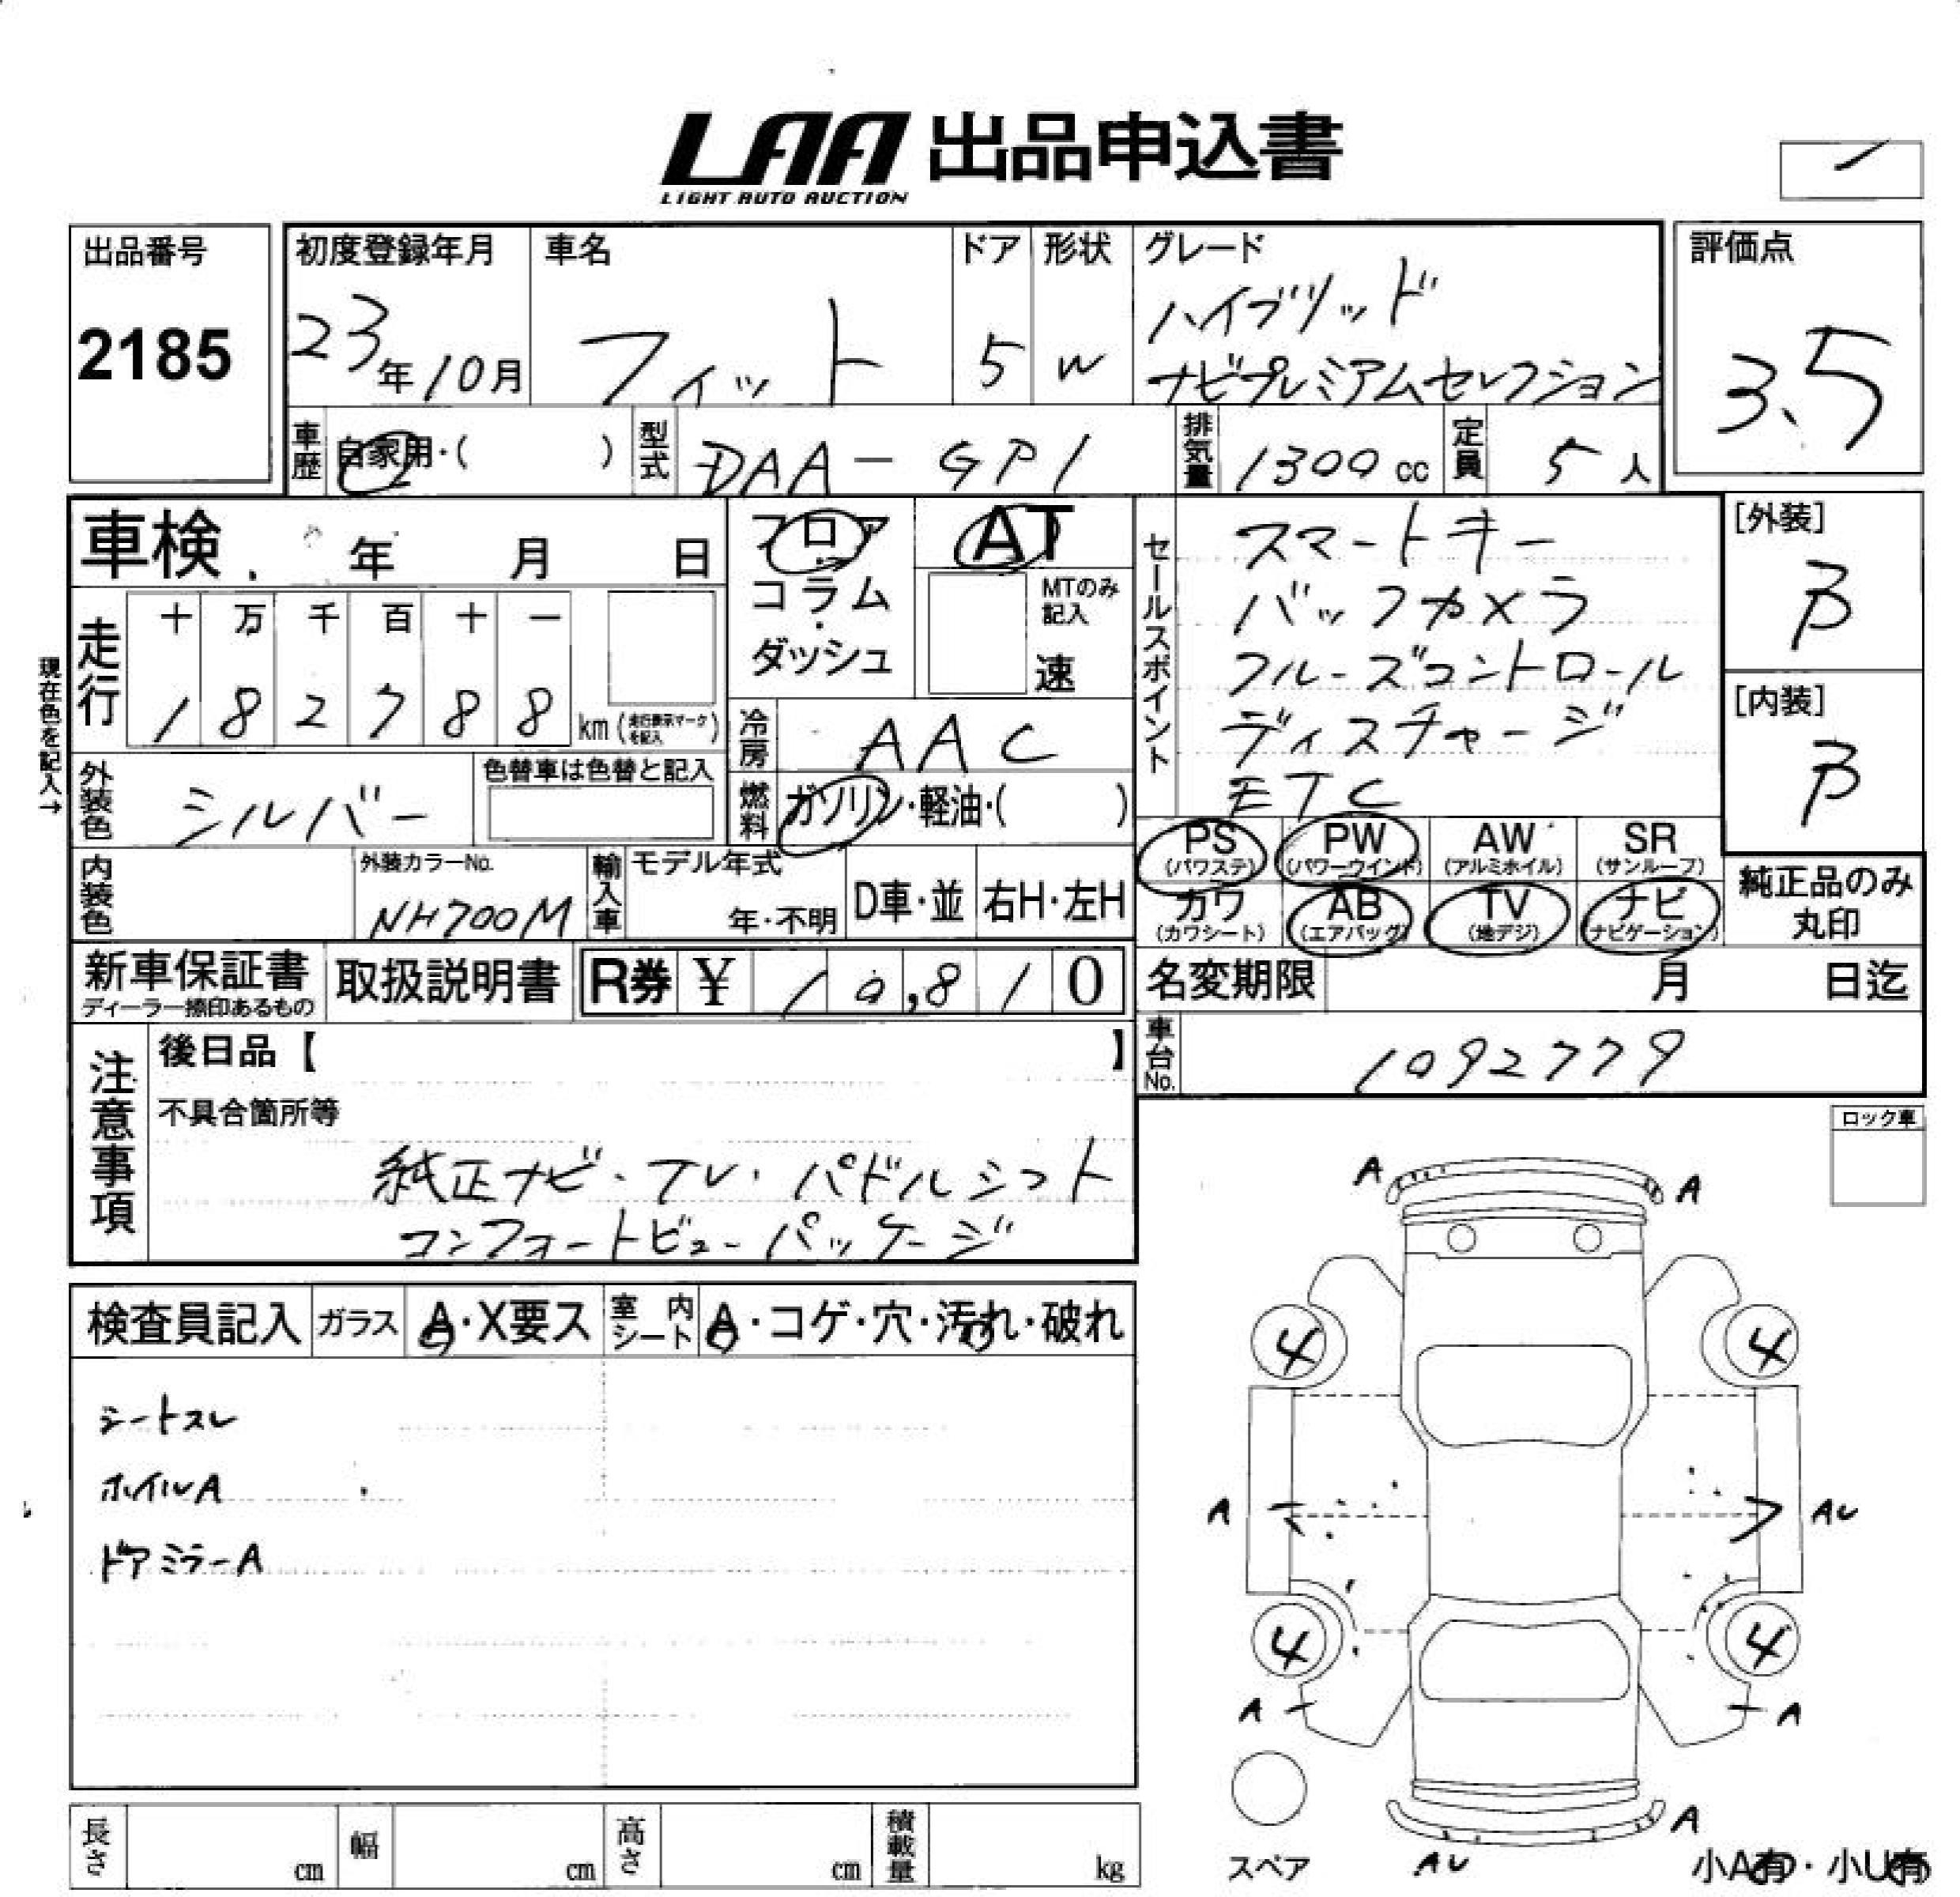 LAA 出品申込書
LIGHT AUTO AUCTION
出品番号
2185
初度登録年月
23年10月
車名
フィット
ドア
5
形状
W
グレード
ハイブリッド
ナビプレミアムセレクション
評価点
3.5
車歴
自家用・( )
型式
DAA-GP1
排気量
1300cc
定員
5人
車検 年 月 日
フロア
・
コラム
・
ダッシュ
AT
MTのみ
記入
速
セールスポイント
スマートキー
バックカメラ
クルーズコントロール
ディスチャージ
ETC
[外装]
B
[内装]
B
現在色を記入→
走行
十 万 千 百 十 一
1 8 2 7 8 8 km (走行表示マークを記入)
冷房
AAC
外装色
シルバー
色替車は色替と記入
燃料
ガソリン・軽油・( )
PS
(パワステ)
PW
(パワーウインド)
AW
(アルミホイル)
SR
(サンルーフ)
カワ
(カワシート)
AB
(エアバッグ)
TV
(地デジ)
ナビ
(ナビゲーション)
純正品のみ
丸印
内装色
外装カラーNo.
NH700M
輸入車
モデル年式
年・不明
D車・並
右H・左H
新車保証書
ディーラー捺印あるもの
取扱説明書
R券 ¥ 10,810
名変期限 月 日迄
車台No.
1092779
注意事項
後日品【 】
不具合箇所等
純正ナビ・TV・パドルシフト
コンフォートビューパッケージ
ロック車
検査員記入
ガラス
A・X要ス
室内シート
A・コゲ・穴・汚れ・破れ
シートスレ
ホイルA
ドアミラーA
A A
4 4
A AU
4 4
A A
A
スペア
AU
小A有・小U有
長さ cm
幅 cm
高さ cm
積載量 kg